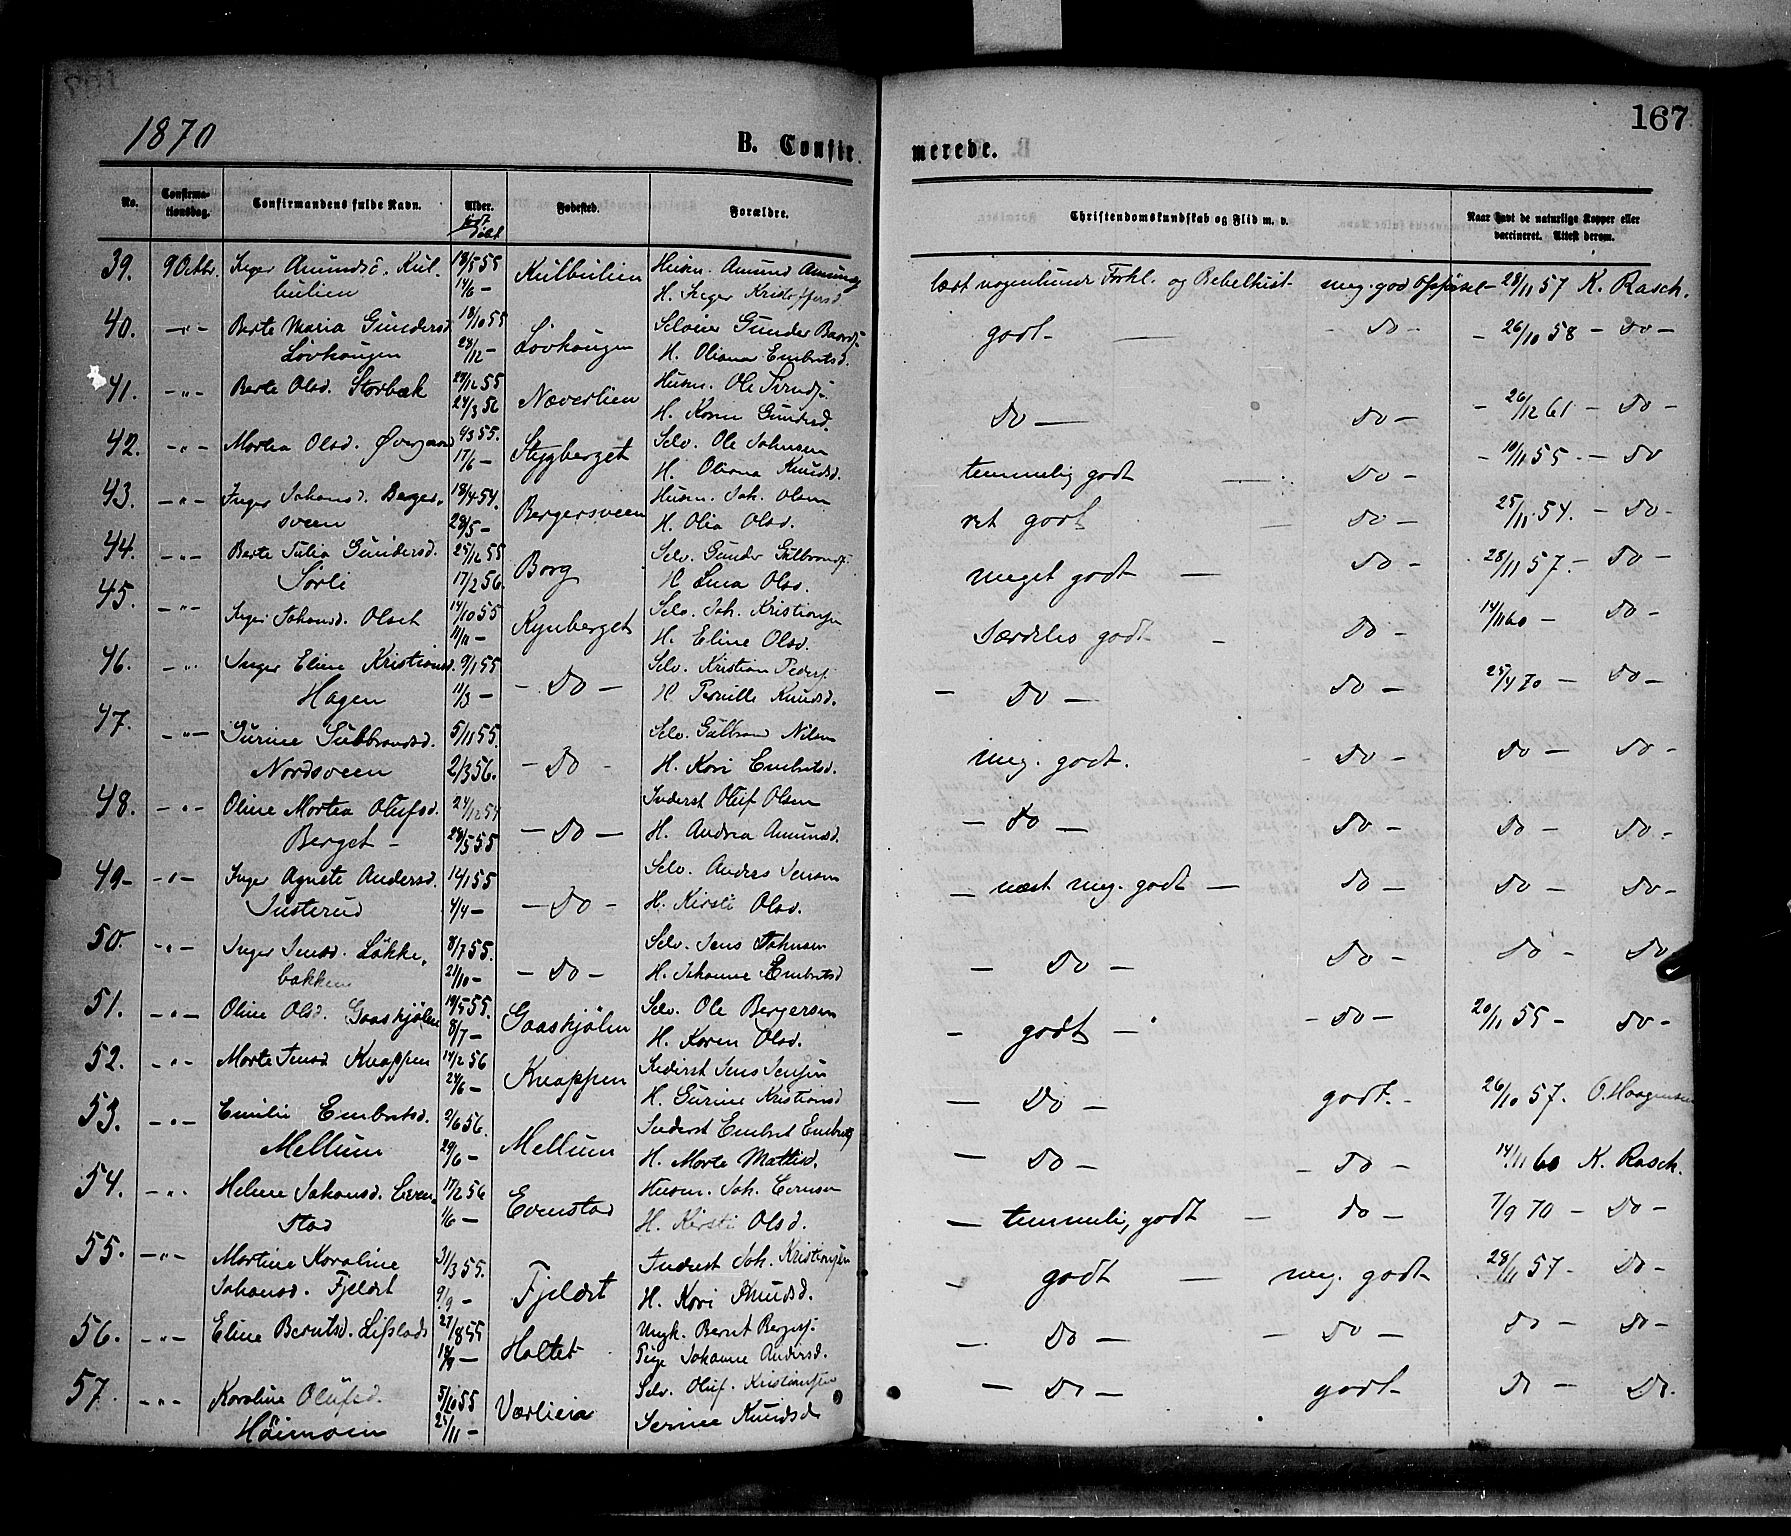 1870
B. Confirmerede.
167
No. Confirmationsdag. Confirmandens fulde Navn. Alder. født døbt Fødested. Forældre. Christendomskundskab og Flid m. v. Naar havt de naturlige Kopper eller vaccineret. Attest derom.
39. 9 Octbr. Inger Amundsd. Kul- 18/5 55 Kulbulien Husm. Amund Amunds
bulien 14/6 - H. Inger Kristofersd. læst nogenlunde Forkl. og Bibelhist. meg. god Opførsel - 28/11 57 K. Rasch.
40. -"- Berte Maria Gundersd. 18/10 55 Løvhaugen Selveier Gunder Baards.
Løvhaugen 28/12 - H. Oliana Embretsd. godt - Do - - 26/10 58 - Do -
41. -"- Berte Olsd. Storbæk 29/12 55 Næverlien Husm. Ole Svends.
24/3 56 H. Karen Gundersd. Do - Do - - 26/12 61 - Do -
42. -"- Mortea Olsd. Øvergaard 4/3 55. Stygberget Selv. Ole Johnsen
17/6 - H. Oliane Knudsd. temmelig godt - Do - - 10/11 55 - Do
43. -"- Inger Johansd. Bergers- 18/4 54. Bergersveen Husm. Joh. Olsen
sveen 28/5 - H. Olia Olsd. ret godt - Do - 25/11 54. - Do -
44. -"- Berte Julia Gundersd. 25/12 55 Borg Selv. Gunder Gulbrands.
Sørli 17/2 56. H. Lina Olsd. meget godt - Do - 28/11 57. - Do -
45. -"- Inger Johansd. Olset 14/10 55 Kynberget Selv. Joh. Kristiansen
11/11 - H. Eline Olsd. Særdeles godt - Do - 14/11 60 - Do -
46. -"- Inger Eline Kristiansd. 9/1 55 - Do - Selv. Kristian Peders.
Hagen 11/3 - H. Pernille Knudsd. - Do - Do - 25/4 70 - Do -
47. -"- Gurine Gulbrandsd. 5/11 55. - Do - Selv. Gulbrand Nilsen
Nordsveen 2/3 56. H. Kari Embretsd. meg. godt. - Do - Do - Do -
48. -"- Oline Mortea Olufsd. 24/12 54 - Do - Inderst Oluf Olsen
Berget - 28/5 55 H. Andrea Amundsd. - Do - Do - Do - Do -
49 - -"- Inger Agnete Andersd. 14/1 55 - Do - Selv. Anders Jensen
Justerud 4/4 - H. Kirsti Olsd. - næst meg. godt - Do - Do - Do -
50. -"- Inger Jensd. Løkke- 8/7 55. - Do - Selv. Jens Johnsen
bakken 21/10 - H. Johanne Embretsd - Do - Do - Do - Do
51. -"- Oline Olsd. Gaaskjølen 18/5 55. Gaaskjølen Selv. Ole Bergersen
8/7 - H. Karen Olsd. - godt - - Do - 20/11 55 - Do -
52. -"- Marte Jensd Knappen 14/2 56 Knappen Inderst Jens Jensen
24/6 - H. Gurine Kristiansd - Do - godt. - 26/10 57. O. Haagensen
53. -"- Emilie Embretsd. 2/6 56. Mellum Inderst Embret Embrets
Mellum 29/6 - H. Marte Mattisd. - Do - - Do - 14/11 60 K. Rasch.
54. -"- Helene Johansd. Even- 17/2 56 Evenstad Husm. Joh. Evensen
stad 1/6 - H. Kirsti Olsd. - temmelig godt - Do - 7/9 70 - Do -
55. -"- Martine Karoline 31/3 55. Fjeldet Inderst Joh. Kristiansen
Johansd. Fjeldet 9/9 - H. Kari Knudsd. - godt - meg. godt - 28/11 57 - Do -
56. -"- Eline Berntsd. Lifslads 27/8 55 Holtet Ungk. Bernt Bergers.
18/9 - Pige Johanne Andersd. - Do - - Do - Do - Do -
57. -"- Karoline Olufsd. 5/10 55 Værlien Selv. Oluf Kristiansen
Høimoen 25/11 - Serine Knudsd - Do - godt - Do - Do.